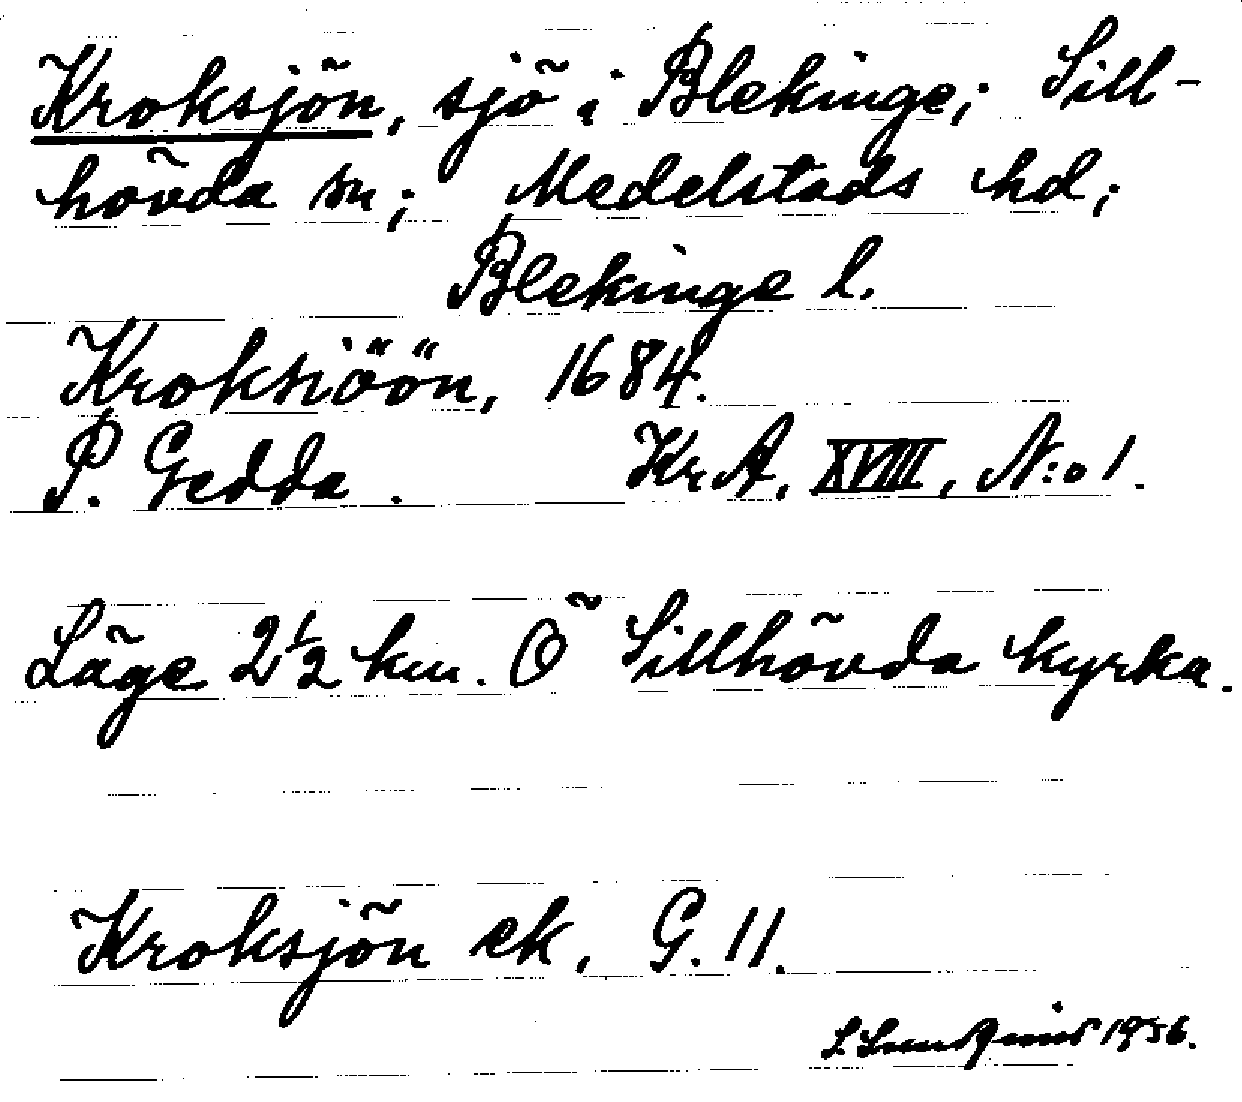 Kroksjön, sjö i Blekinge; Sill-
hövda sn; Medelstads hd;
Blekinge l.
Kroksiöön, 1684.
P. Gedda. Kr A, XVIII, N:o 1.
Läge 2 1/2 km. Ö Sillhövda kyrka.
Kroksjön ek, G. 11.
S. Lundqvist 1956.